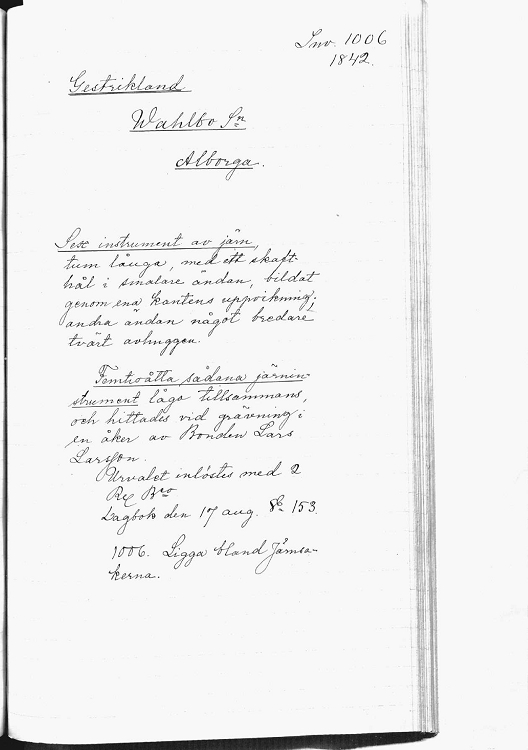 Inv. 1006
1842.
Gestrikland
Wahlbo Sn
Alborga.
Sex instrument av järn,
tum långa, med ett skaft-
hål i smalare ändan, bildat
genom ena kantens uppvikning;
andra ändan något bredare,
tvärt avhuggen.
Femtioåtta sådana järnin-
strument lågo tillsammans,
och hittades vid grävning i
en åker av Bonden Lars
Larsson.
Urvalet inlöstes med 2
Bco
Dagbok den 17 aug. 153.
1006. Ligga bland Järnsa-
kerna.